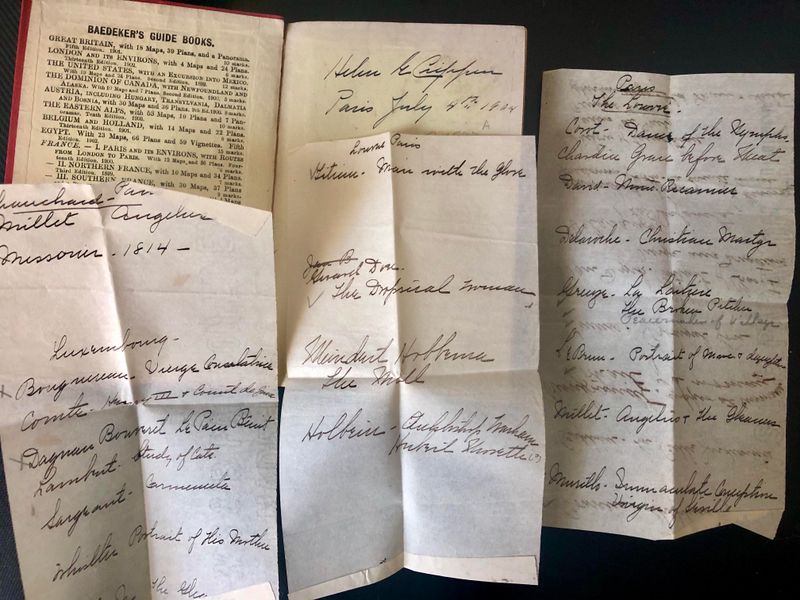 BAEDEKER'S GUIDE BOOKS.
GREAT BRITAIN, with 18 Maps, 39 Plans, and a Panorama.
Fifth Edition. 1901. 10 marks.
LONDON AND ITS ENVIRONS, with 4 Maps and 24 Plans.
Thirteenth Edition. 1902. 6 marks.
THE UNITED STATES, WITH AN EXCURSION INTO MEXICO.
With 19 Maps and 24 Plans. Second Edition. 1899. 12 marks.
THE DOMINION OF CANADA, WITH NEWFOUNDLAND AND
ALASKA. With 10 Maps and 7 Plans. Second Edition. 1900. 5 marks.
AUSTRIA, INCLUDING HUNGARY, TRANSYLVANIA, DALMATIA,
AND BOSNIA, with 30 Maps and
THE EASTERN ALPS, with 53 Maps, 10 Plans, and 7 Pan-
oramas. Tenth Edition.
BELGIUM AND HOLLAND, with 14 Maps and 22 Plans.
Thirteenth Edition. 1901.
EGYPT. With 23 Maps, 66 Plans and 59 Vignettes. Fifth
Edition. 1902. 15 marks.
FRANCE. — I. PARIS AND ITS ENVIRONS, WITH ROUTES
FROM LONDON TO PARIS. With 13 Maps, and 36 Plans. Four-
teenth Edition. 1900.
— II. NORTHERN FRANCE, with 10 Maps and 34 Plans
Third Edition. 1899.
— III. SOUTHERN FRANCE, with 30 Maps, 37 Plans
Helen E Crippen
Paris July 4th 1904
Chauchard - Par
Millet Angelus
Messonier - 1814 —
Luxembourg -
x Bouguereau - Vierge Consolatrice
Comte - Henri III &
x Dagnan Bouveret Le Pain Benit
Lambert - Study of Cats
Sargeant - Carmencita
Whistler Portrait of His Mother
The
Louvre Paris
Titian - Man with the Glove
Gerard Dou -
✓ The Dropsical Woman
Meindart Hobbema
The Mill
Holbein - Archbishop Warham
Paris
The Louvre -
Corot - Dance of the Nymphs
Chardin Grace before Meat
David - Mme Recamier
Delaroche - Christian Martyr
Greuze - La Laitiere
The Broken Pitcher
Peacemaker of Village
LeBrun - Portrait of Mme & daughter
Millet - Angelus & The Gleaners
Murillo - Immaculate Conception
Virgin of Seville